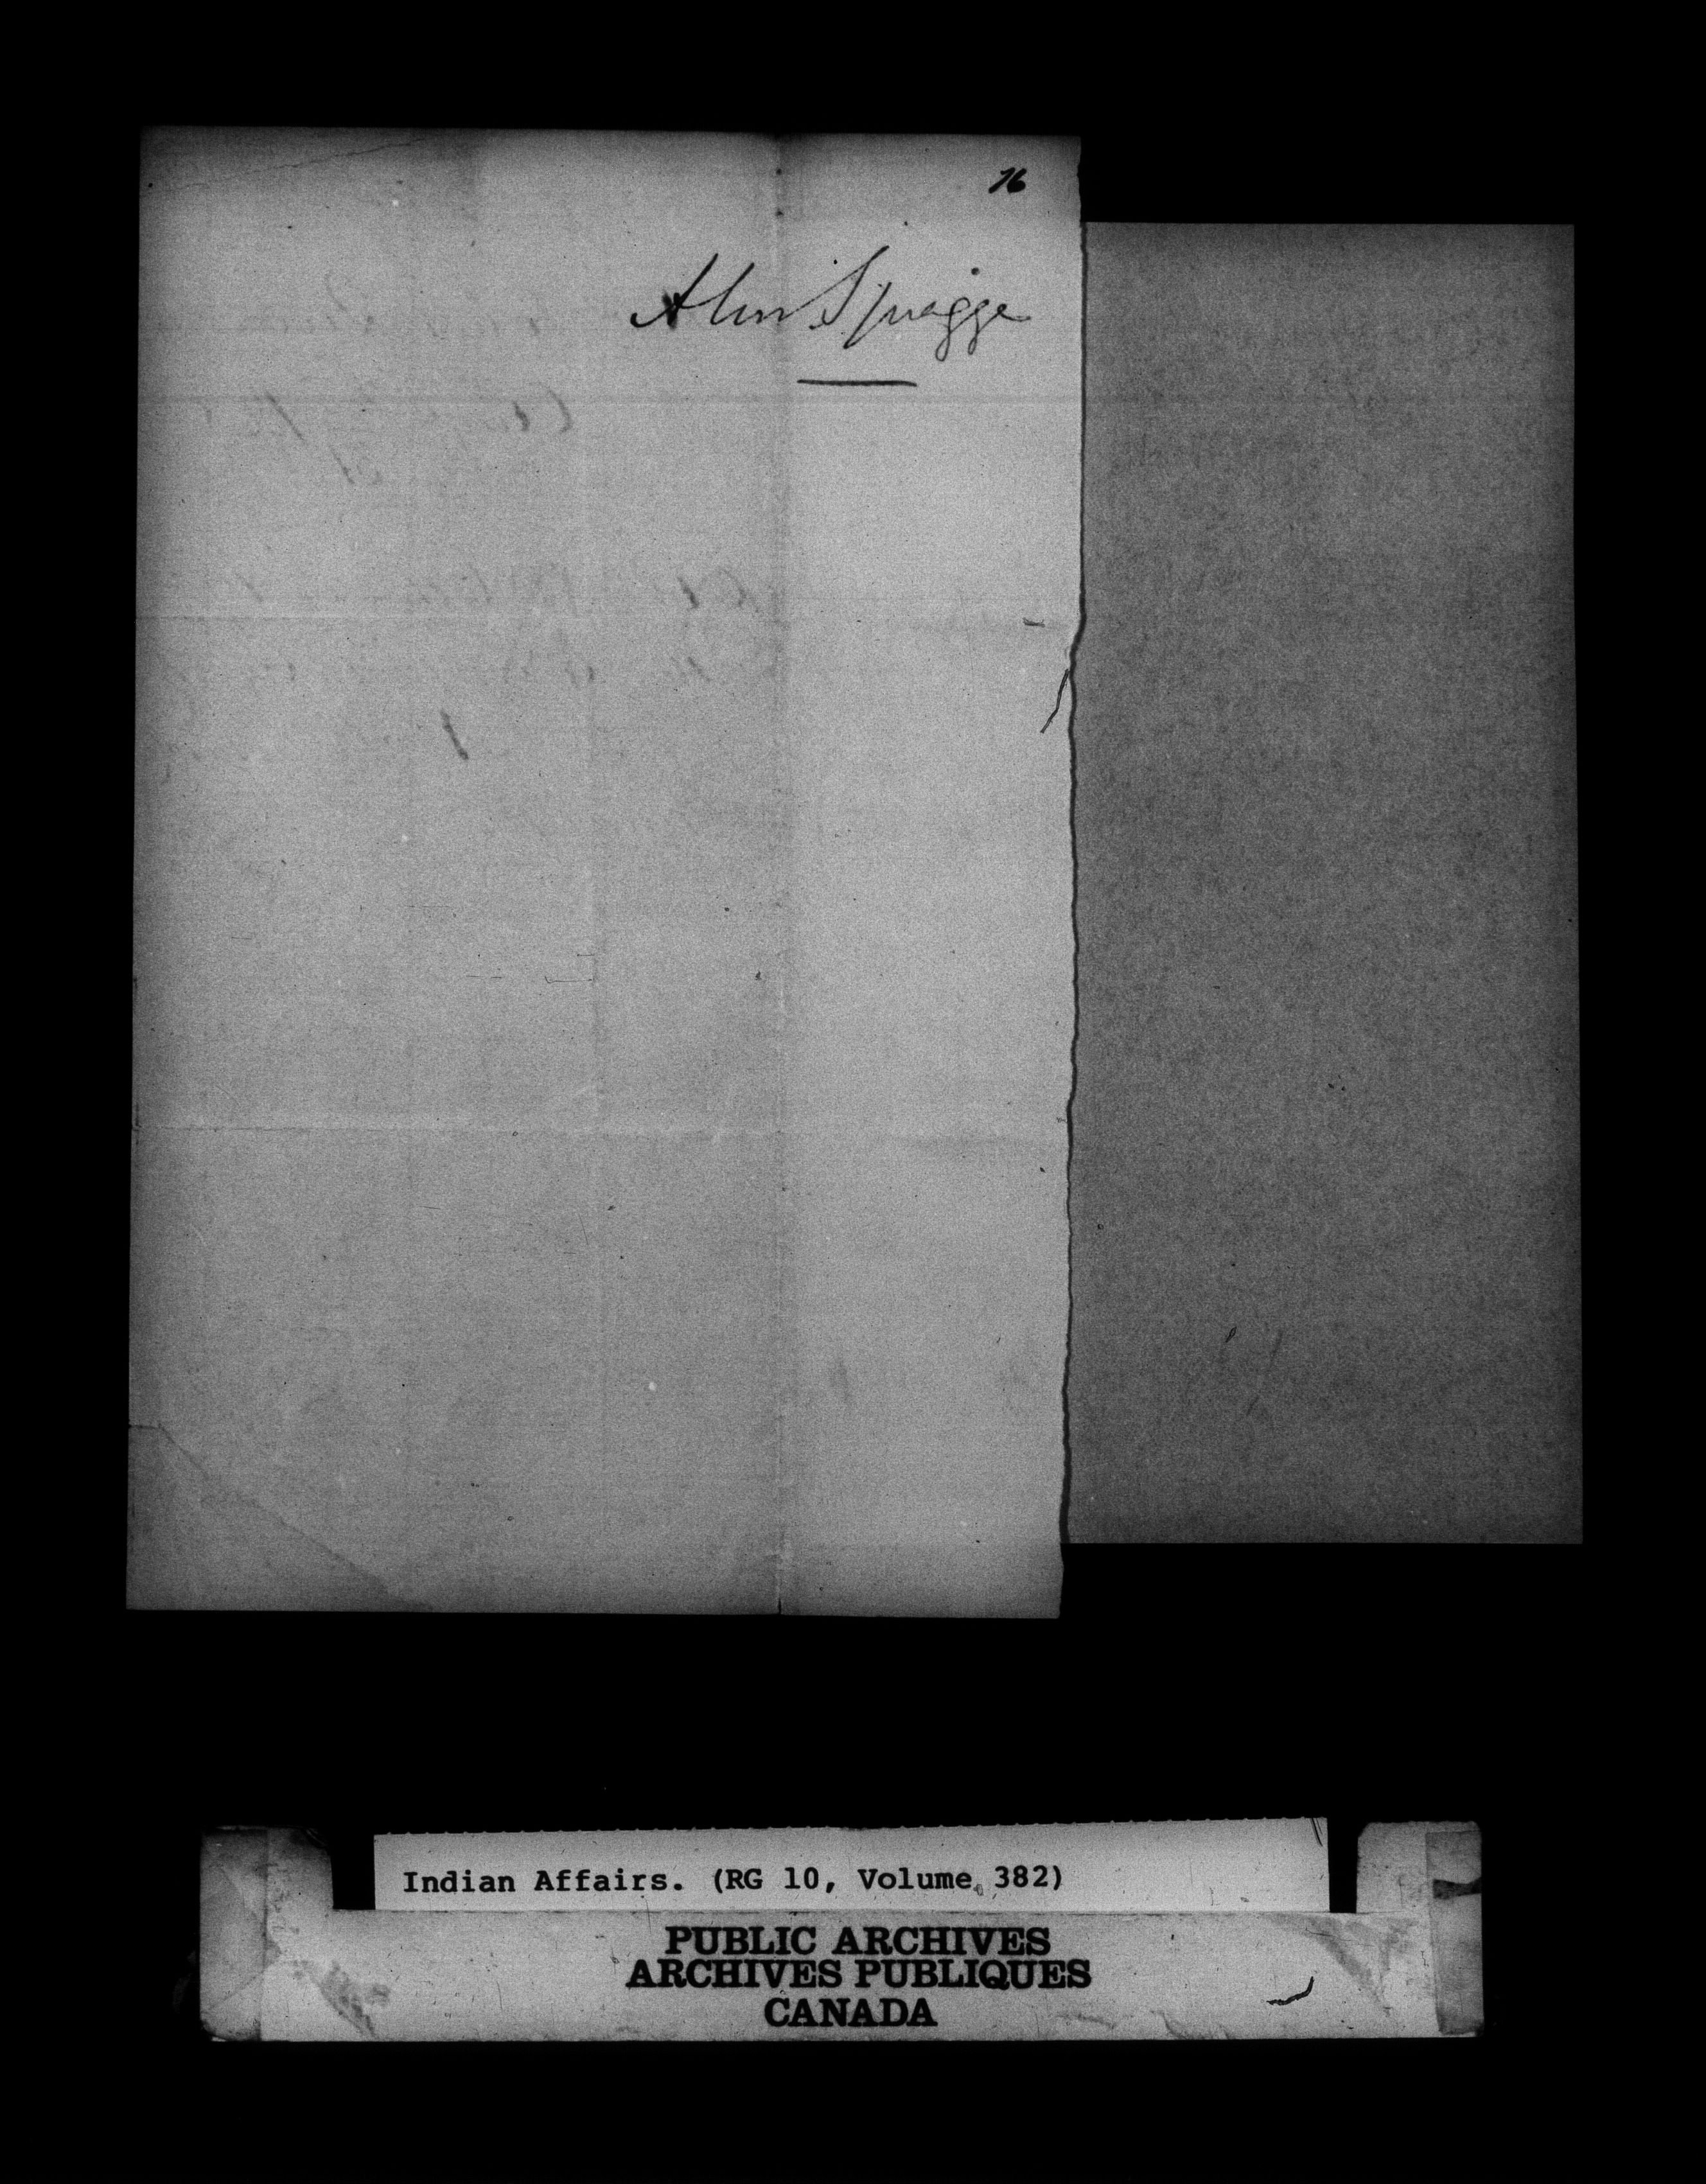 76
Spragge
Indian Affairs. (RG 10, Volume 382)
PUBLIC ARCHIVES
ARCHIVES PUBLIQUES
CANADA